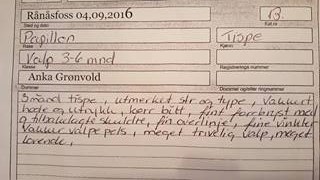 Rånåsfoss 04,09,2016
13.
Sted og dato
Kat.nr.
Papillon
Tispe
Rase
Kjønn
Valp 3-6 mnd
Klasse
Registrerings nummer
Anka Grønvold
Dommer
5 månd tispe, utmerket str og type, vakkert
hode og uttrykk, korr bitt, fint forbryst med
og tilbakelagte skuldre, fin overlinje, fine vinkler
vakker valpepels, meget trivelig valp, meget
lovende,